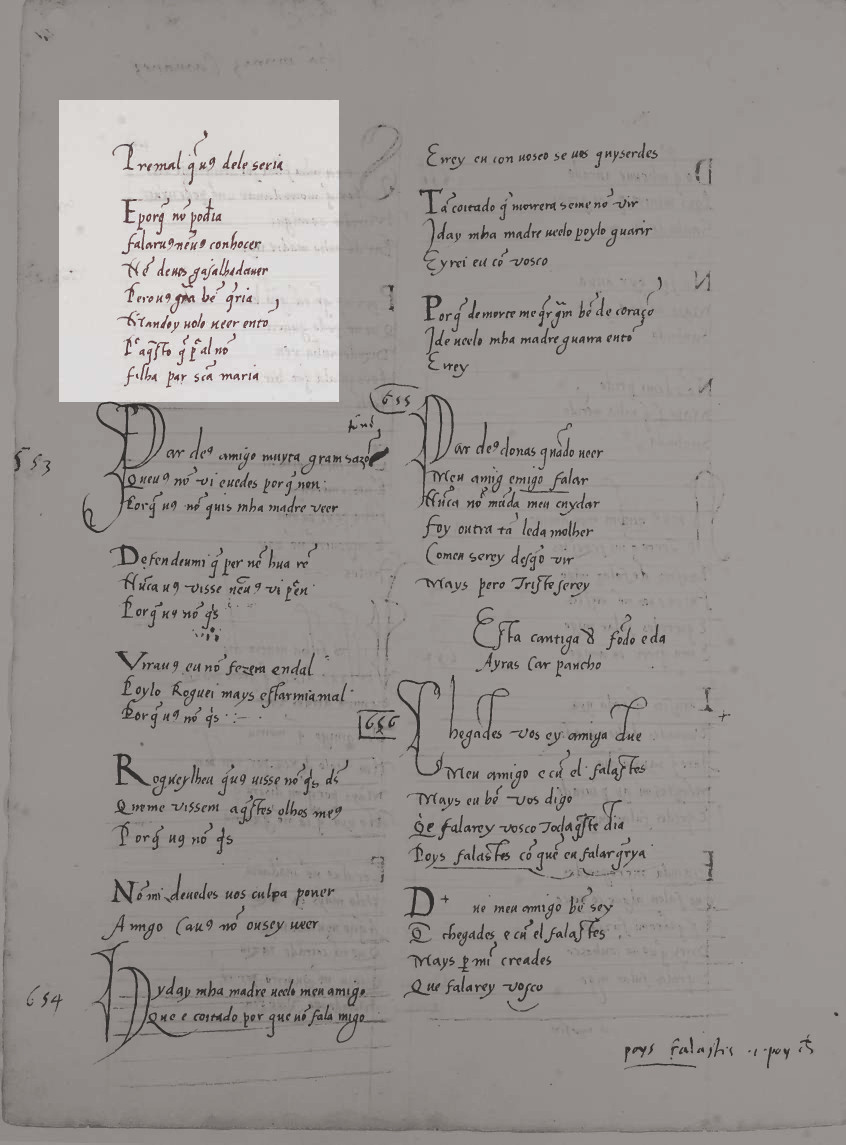 Tremal q̃ uꝯ dele seria
E porq̃ nõ podia
falaruꝯ neuꝯ conhocer
Nẽ deuos gasalhadauer
Perouꝯ gra bẽ q̃ria
Mandoy uolo ueer entõ
P aq̃sto q̃ p al nõ
filha par scã maria
553
Par deꝯ amigo muyta gram sazõ
Queuꝯ nõ vi euedes porq̃ non
Porq̃ uꝯ nõ quis mha madre veer
Defendeumi q̃ per nẽ hua rẽ
Nũca uꝯ visse nẽuꝯ vi pẽn
Porq̃ uꝯ nõ q̃s
Virauꝯ eu nõ fezera endal
Poylo Roguei mays estarmia mal
Porq̃ uꝯ nõ q̃s
Rogueylheu q̃ uꝯ uisse nõ q̃s dẽ
Queme vissem aq̃stes olhos meꝯ
Porq̃ uꝯ nõ q̃s
Nõ mi deuedes uos culpa poner
Amigo Cauꝯ nõ ousey ueer
654
Hyday mha madre ueelo meu amigo
Que e coitado por que nõ fala migo
Eirey eu con uosco se uos quyserdes
Tã coitado q̃ morrera seme nõ vir
Iday mha madre ueelo poylo guarir
Eyrei eu cõ vosco
Porq̃ demorte me q̃r grm̃ bẽ de coraçõ
Ide ueelo mha madre guarra entõ
Eirey
655
Par deꝯ donas quãdo ueer
Meu amig emigo falar
Nũca nõ mũda meu cuydar
foy outra tã leda molher
Comeu serey desq̃o vir
Mays pero Triste serey
Esta cantiga é fõdo e da
Ayras Carpancho
656
Chegades vos ey amiga due
Meu amigo e cũ el falastes
Mays eu bẽ vos digo
Qe falarey vosco Todaq̃ste dia
Poys falastes cõ quẽ eu falar q̃rya
D ue meu amigo bẽ sey
Q chegades e cũ el falastes
Mays p mĩ creades
Que falarey vosco
poys falastis